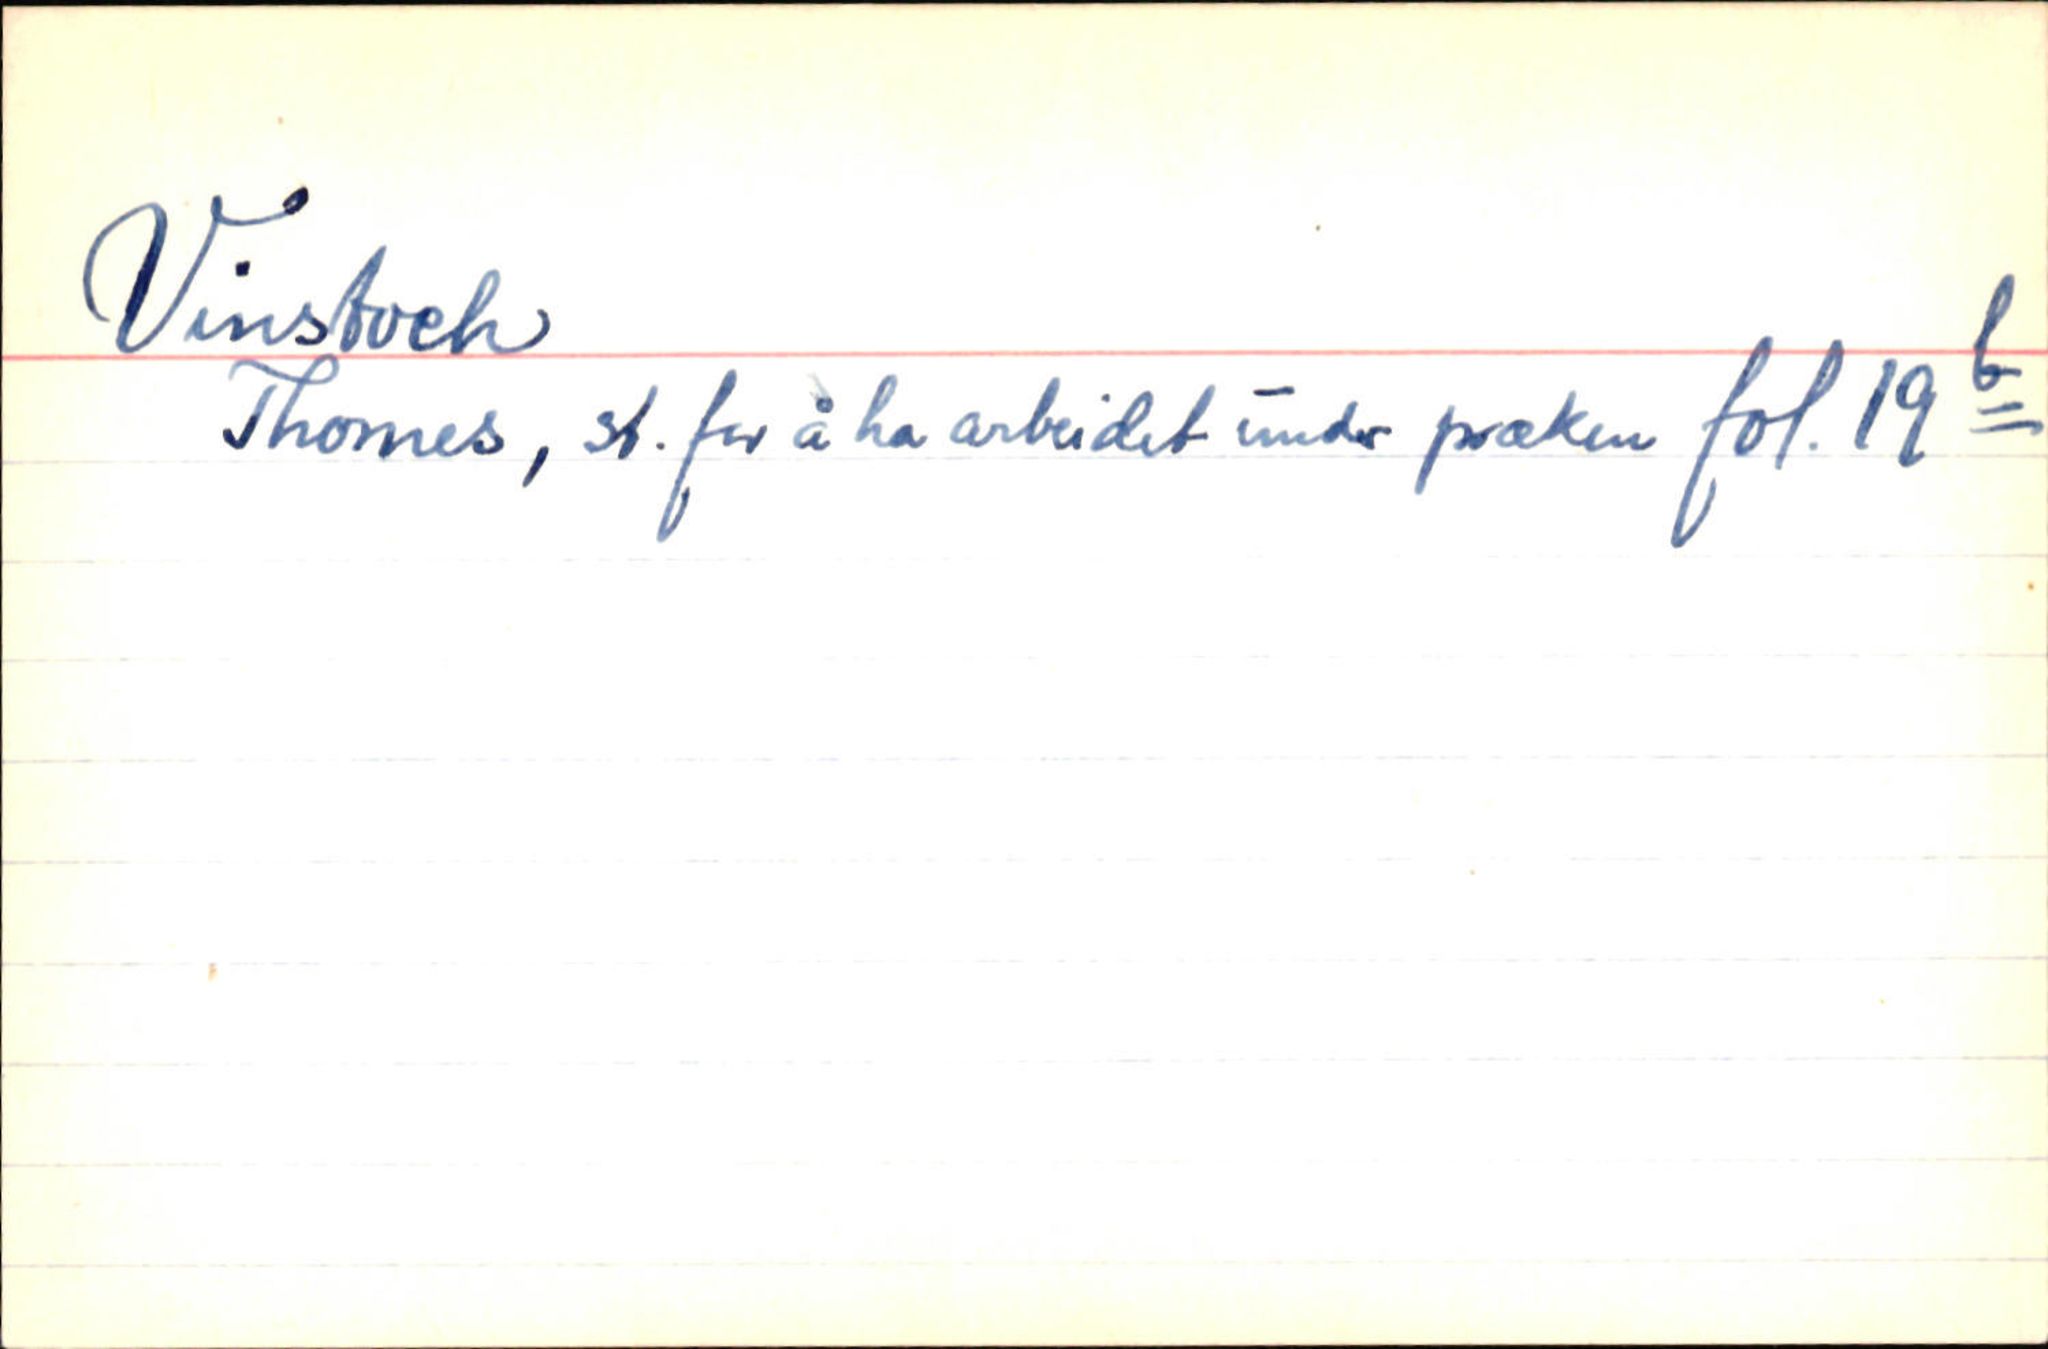 Vinstoch
Thomes, st. for å ha arbeidet under præken fol. 19 b